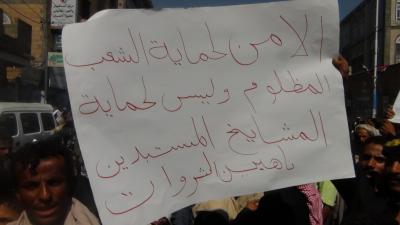 الامن لحماية الشعب
المظلوم وليس لحماية
المشايخ المستبدين
ناهبين الثروات